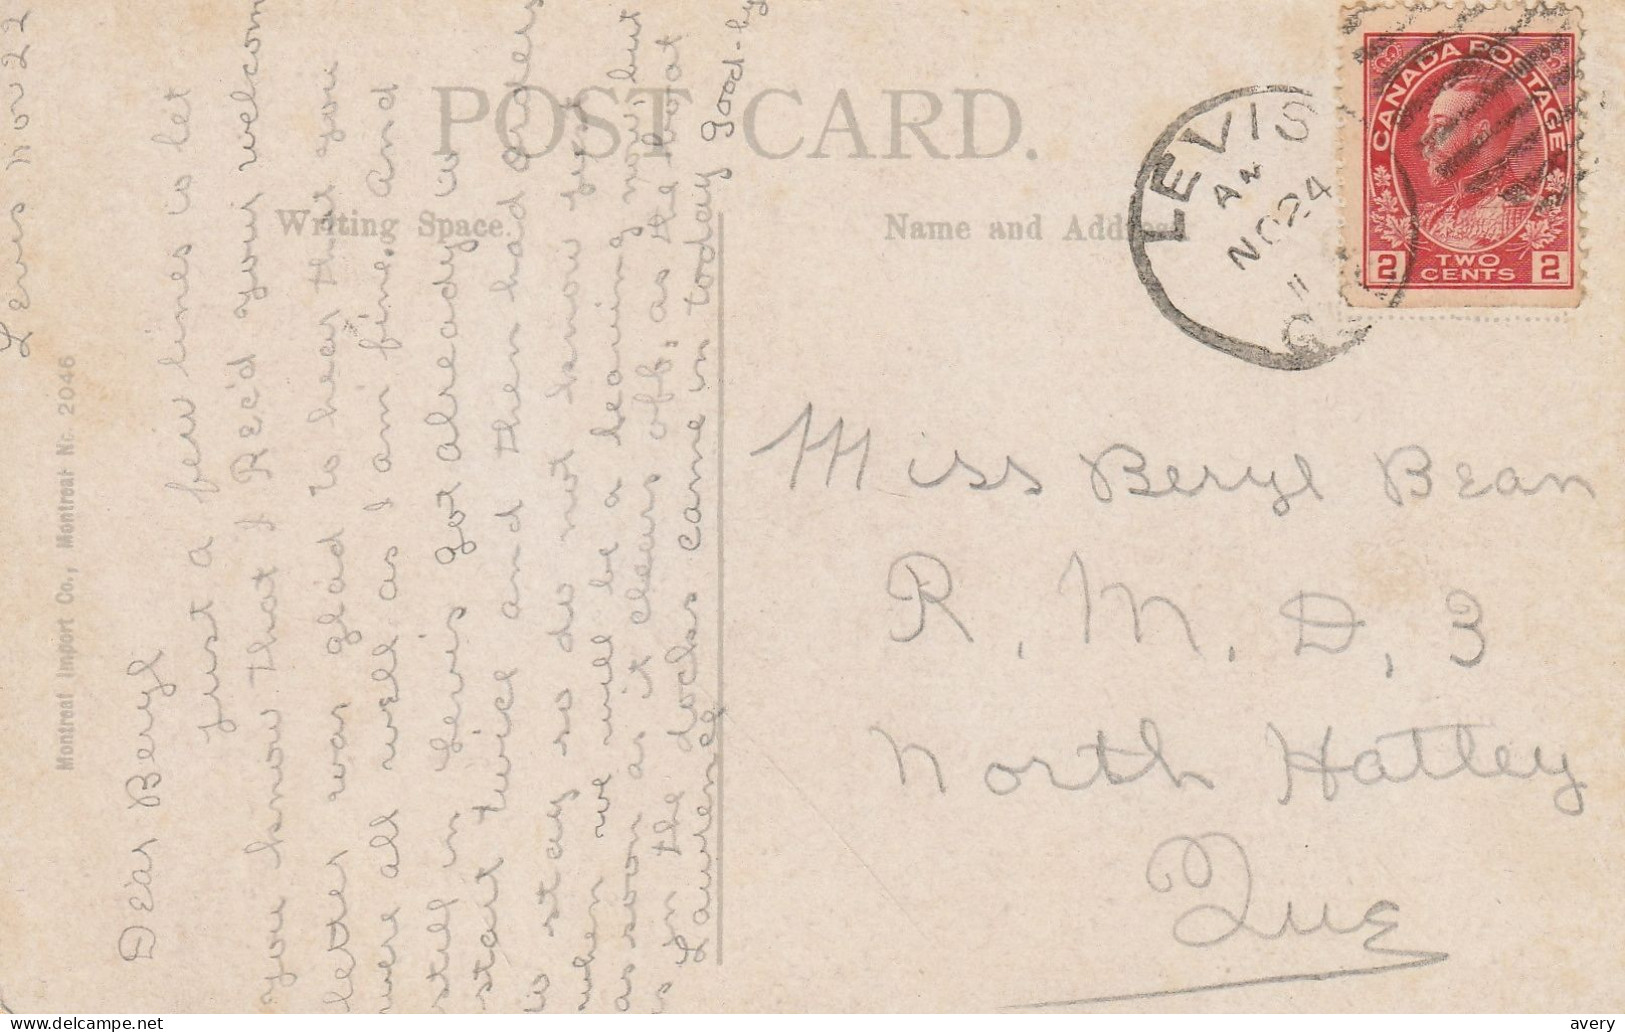 POST CARD.
Writing Space.
Name and Add
Montreal Import Co., Montreal No. 2046
Levis Nov 22
Dear Beryl
Just a few lines to let
you know that I Rec'd your welcom
letter was glad to hear that you
were all well as I am fine. And
still in Levis got already to
start twice and then had orders
to stay so do not know just
when we will be leaving now but
as soon as it clears off. as the boat
is in the docks came in today good-by
Lawrence
LEVIS
AM
NO 24
11
CANADA POSTAGE
2 TWO CENTS 2
Miss Beryl Bean
R. M. D. 3
North Hatley
Que
delcampe.net
avery